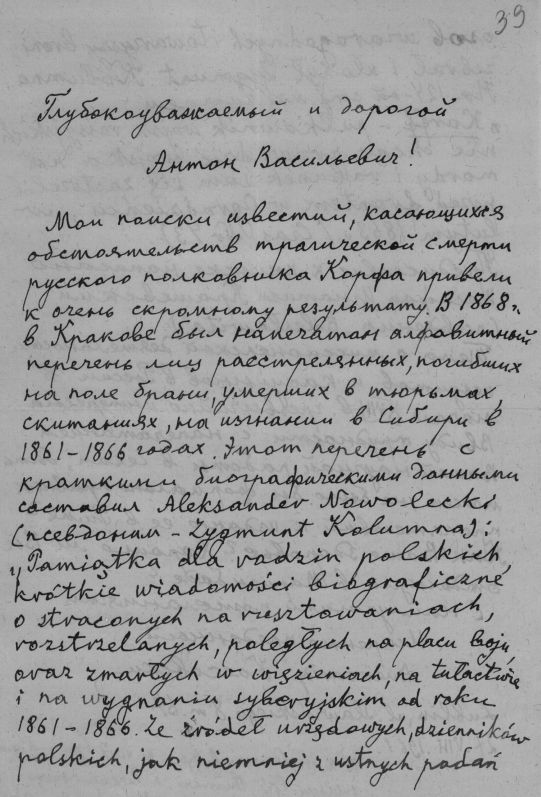 39
Глубокоуважаемый и дорогой
Антон Васильевич!
Мои поиски известий, касающихся
обстоятельств трагической смерти
русского полковника Корфа привели
к очень скромному результату. В 1868 г.
в Кракове был напечатан алфавитный
перечень лиц расстрелянных, погибших
на поле брани, умерших в тюрьмах,
скитаниях, на изгнании в Сибири в
1861-1866 годах. Этот перечень с
краткими биографическими данными
составил Aleksander Nowolecki
(псевдоним - Zygmunt Kolumna):
"Pamiątka dla rodzin polskich,
krótkie wiadomości biograficzne
o straconych na rusztowaniach,
rozstrzelanych, poległych na placu boju,
oraz zmarłych w więzieniach, na tułactwie
i na wygnaniu syberyjskim od roku
1861-1866. Ze źródeł urzędowych, dzienników
polskich, jak niemniej z ustnych podań